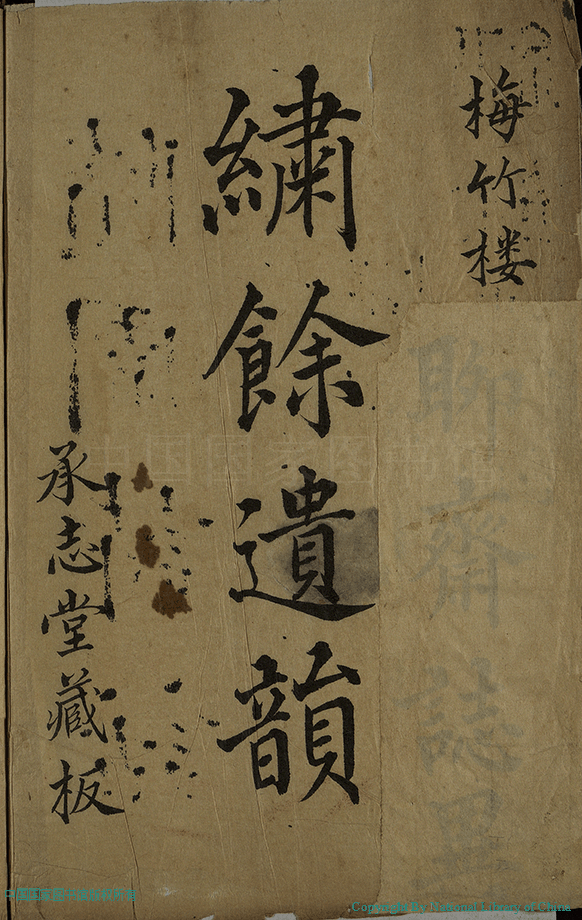 梅竹楼
聊齋誌異
繡餘遺韻
承志堂藏板
中国国家图书馆
Copyright By National Library of China